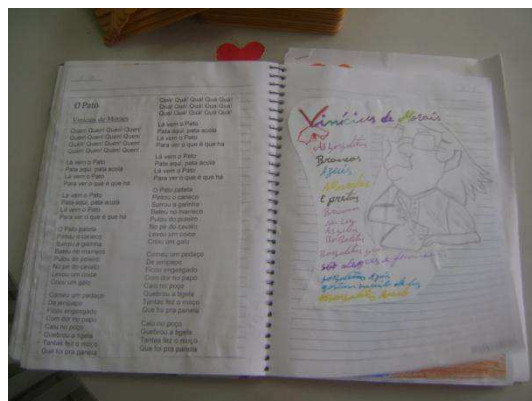 O Pato
Vinicius de Moraes
Quen! Quen! Quen! Quen!
Quen! Quen! Quen! Quen!
Quen! Quen! Quen! Quen!
Quen! Quen! Quen! Quen!
Lá vem o Pato
Pata aqui, pata acolá
Lá vem o Pato
Para ver o que é que há
Lá vem o Pato
Pata aqui, pata acolá
Lá vem o Pato
Para ver o que é que há
O Pato pateta
Pintou o caneco
Surrou a galinha
Bateu no marreco
Pulou do poleiro
No pé do cavalo
Levou um coice
Criou um galo
Comeu um pedaço
De jenipapo
Ficou engasgado
Com dor no papo
Caiu no poço
Quebrou a tigela
Tantas fez o moço
Que foi pra panela
Qua! Qua! Qua! Qua!
Qua! Qua! Qua! Qua!
Qua! Qua! Qua! Qua!
Lá vem o Pato
Pata aqui, pata acolá
Lá vem o Pato
Para ver o que é que há
Lá vem o Pato
Pata aqui, pata acolá
Lá vem o Pato
Para ver o que é que há
O Pato pateta
Pintou o caneco
Surrou a galinha
Bateu no marreco
Pulou do poleiro
No pé do cavalo
Levou um coice
Criou um galo
Comeu um pedaço
De jenipapo
Ficou engasgado
Com dor no papo
Caiu no poço
Quebrou a tigela
Tantas fez o moço
Que foi pra panela
Caiu no poço
Quebrou a tigela
Tantas fez o moço
Que foi pra panela
Vinícius de Morais
Brancas
Azuis
Amarelas
E pretas
Brincam
na luz
As
borboletas
borboletas
são alegres e
borboletas azuis
gostam muito de luz